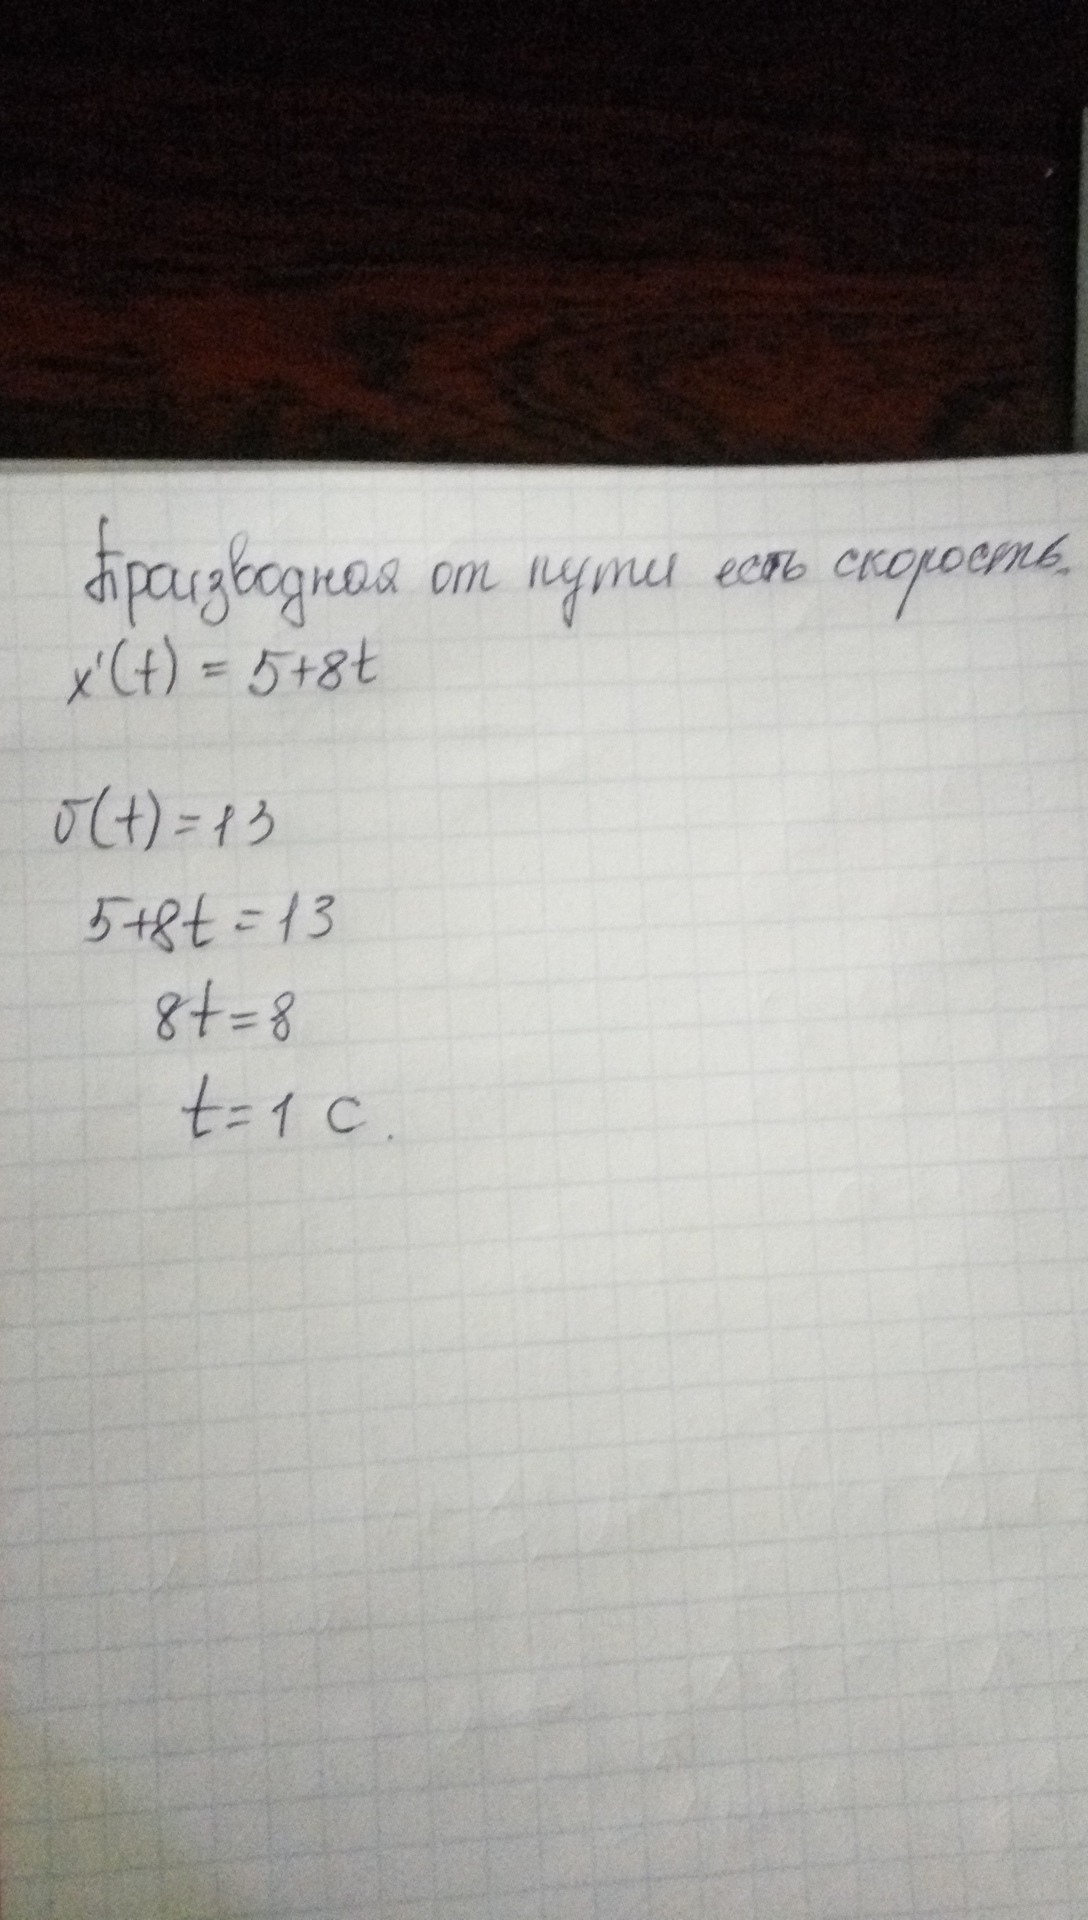 Производная от пути есть скорость.
x'(t) = 5+8t
υ(t)=13
5+8t=13
8t=8
t=1 c.